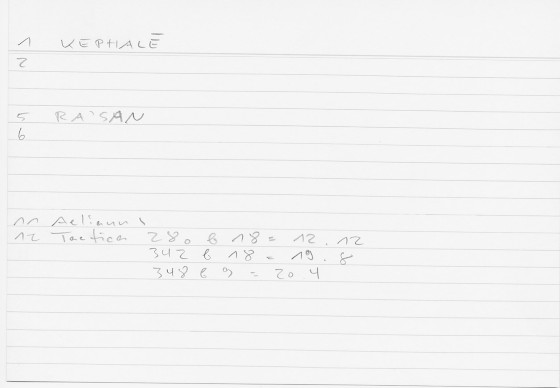 1 KEPHALĒ
2
5 RA'SAN
6
11 Aelianus
12 Tactica 280 b 18 = 12.12
342 b 18 = 19.8
348 b 9 = 20 4